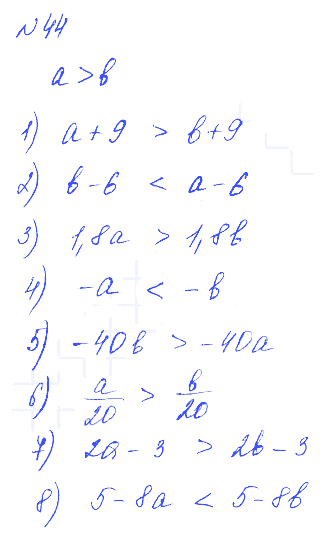 N44
a > b
1) a + 9 > b + 9
2) b - 6 < a - 6
3) 1,8a > 1,8b
4) -a < -b
5) -40b > -40a
6) a/20 > b/20
7) 2a - 3 > 2b - 3
8) 5 - 8a < 5 - 8b